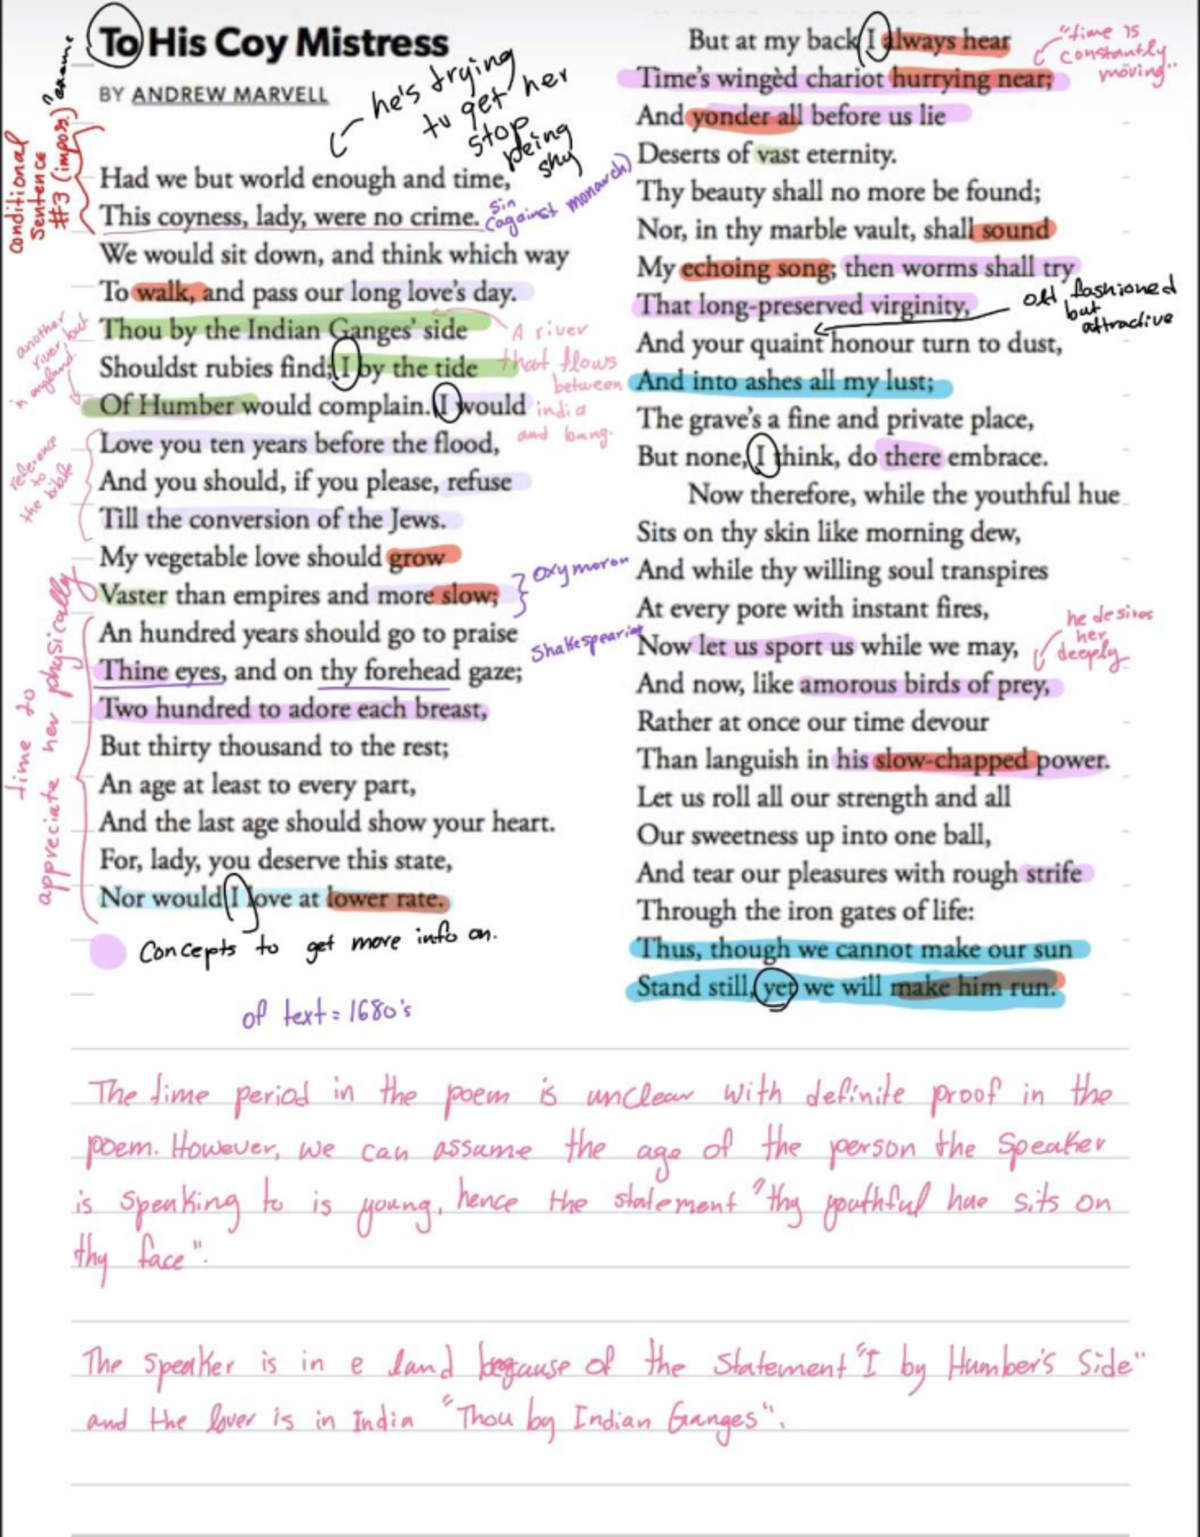 To His Coy Mistress
BY ANDREW MARVELL
he's trying
to get her
stop
being
shy
conditional
sentence
#3 (imposs.)
Had we but world enough and time,
This coyness, lady, were no crime.
sin
(against monarch)
We would sit down, and think which way
To walk, and pass our long love's day.
Thou by the Indian Ganges' side
A river
that flows
between
india
and bang.
another
river, but
in england.
Shouldst rubies find; I by the tide
Of Humber would complain. I would
Love you ten years before the flood,
reference
to
the bible
And you should, if you please, refuse
Till the conversion of the Jews.
My vegetable love should grow
Vaster than empires and more slow;
oxymoron
An hundred years should go to praise
Shakespearian
Thine eyes, and on thy forehead gaze;
Two hundred to adore each breast,
time to
appreciate her physically
But thirty thousand to the rest;
An age at least to every part,
And the last age should show your heart.
For, lady, you deserve this state,
Nor would I love at lower rate.
Concepts to get more info on.
of text = 1680's
But at my back I always hear
"time is
constantly
moving"
Time's wingèd chariot hurrying near;
And yonder all before us lie
Deserts of vast eternity.
Thy beauty shall no more be found;
Nor, in thy marble vault, shall sound
My echoing song; then worms shall try
That long-preserved virginity,
old fashioned
but
attractive
And your quaint honour turn to dust,
And into ashes all my lust;
The grave's a fine and private place,
But none, I think, do there embrace.
Now therefore, while the youthful hue
Sits on thy skin like morning dew,
And while thy willing soul transpires
At every pore with instant fires,
Now let us sport us while we may,
he desires
her
deeply
And now, like amorous birds of prey,
Rather at once our time devour
Than languish in his slow-chapped power.
Let us roll all our strength and all
Our sweetness up into one ball,
And tear our pleasures with rough strife
Through the iron gates of life:
Thus, though we cannot make our sun
Stand still, yet we will make him run.
The time period in the poem is unclear with definite proof in the
poem. However, we can assume the age of the person the speaker
is speaking to is young, hence the statement "thy youthful hue sits on
thy face".
The speaker is in e land because of the statement "I by Humber's Side"
and the lover is in India "Thou by Indian Ganges".